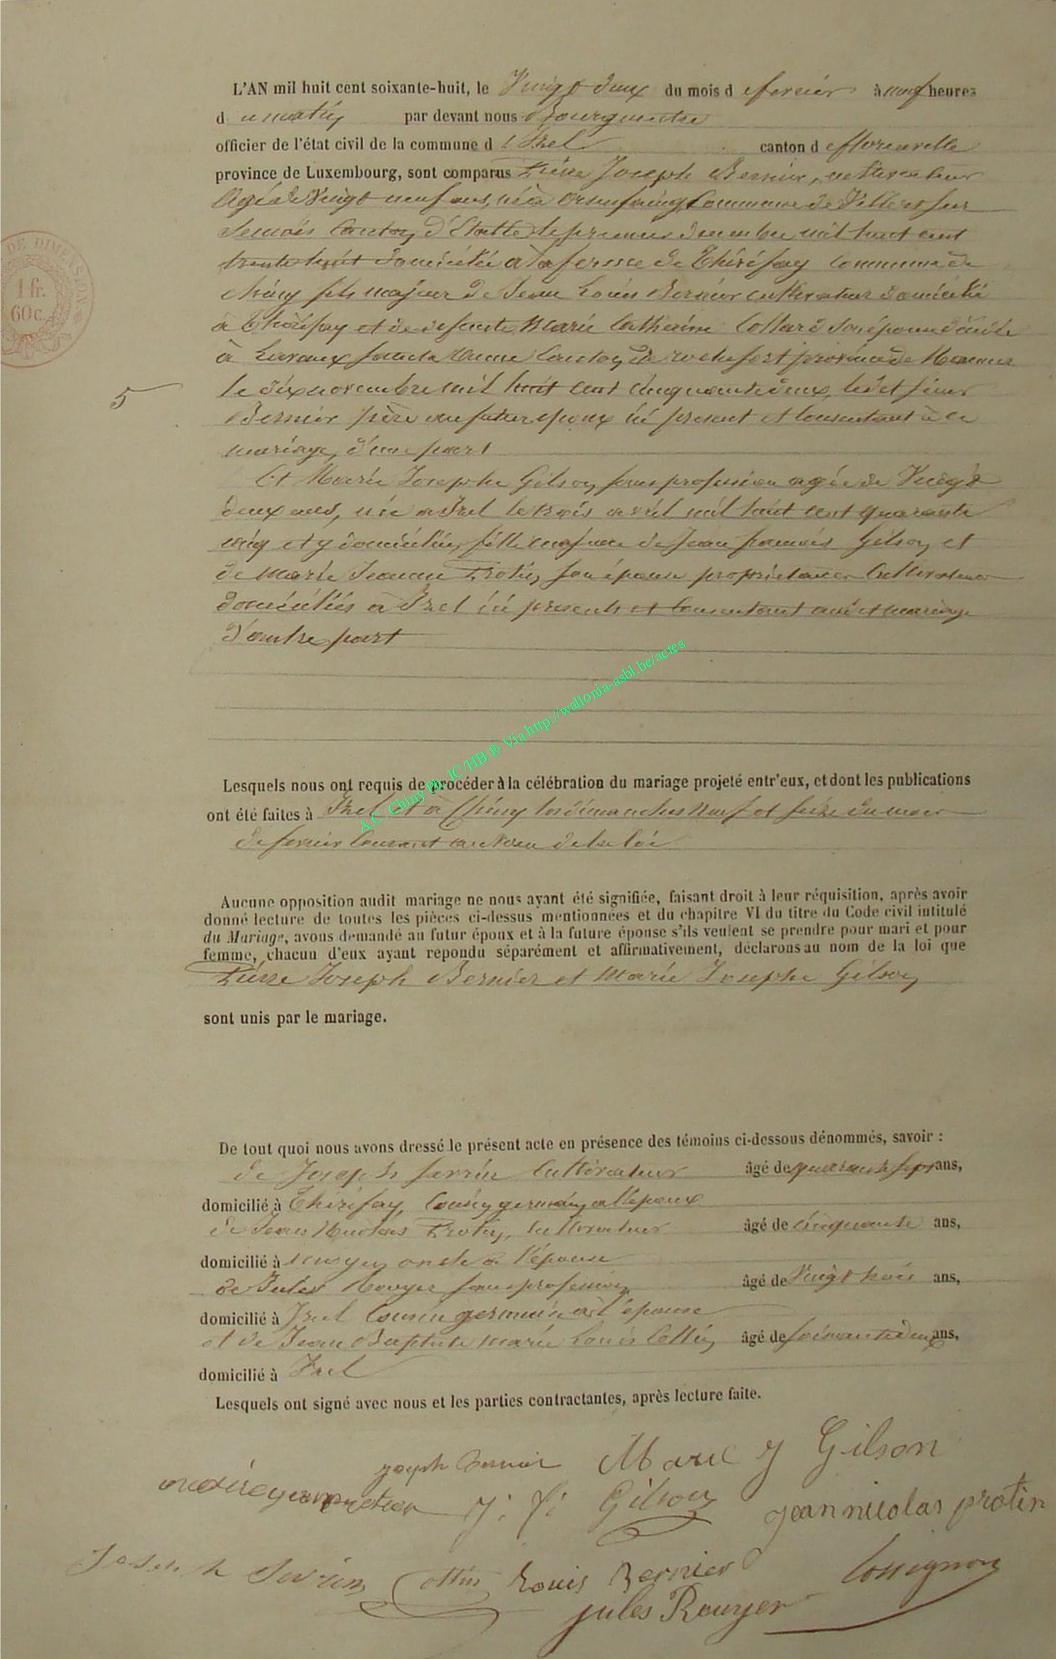 L'AN mil huit cent soixante-huit, le Vingt deux du mois d e fevrier à neuf heures
d u matin par devant nous Bourgmestre
officier de l'état civil de la commune d 'Izel canton d e florenville
province de Luxembourg, sont comparus Pierre Joseph Bernier, cultivateur
Agé de Vingt neuf ans, né à Commune de Villers sur
Semois Canton d'Étalle le premier decembre mil huit cent
trente huit domicilié a la ferme de Thiréfay commune de
chiny fils majeur de Jean Louis Bernier cultivateur domicilié
à Thiréfay et de defunte Marie Catherine Collard son épouse décédée
à Lavaux Sainte Anne Canton de rochefort province de Namur
5 le dix novembre mil huit cent cinquante deux, ledit sieur
Bernier père du futur epoux ici present et consentant à ce
mariage, d'une part
Et Marie Josephe Gilson sans profession agée de Vingt
deux ans, née a Izel le trois avril mil huit cent quarante
cinq et y domiciliée, fille majeure de Jean francois Gilson et
de Marie Jeanne Protin son épouse propriétaires Cultivateurs
domiciliés à Izel ici presents et consentant audit mariage
d'autre part
Lesquels nous ont requis de procéder à la célébration du mariage projeté entr'eux, et dont les publications
ont été faites à Izel et à Chiny les dimanches neuf et seize du mois
de fevrier Courant au voeu de la loi
Aucune opposition audit mariage ne nous ayant été signifiée, faisant droit à leur réquisition, après avoir
donné lecture de toutes les pièces ci-dessus mentionnées et du chapitre VI du titre du Code civil intitulé
du Mariage, avons demandé au futur époux et à la future épouse s'ils veulent se prendre pour mari et pour
femme, chacun d'eux ayant repondu séparément et affirmativement, déclarons au nom de la loi que
Pierre Joseph Bernier et Marie Josephe Gilson
sont unis par le mariage.
De tout quoi nous avons dressé le présent acte en présence des témoins ci-dessous dénommés, savoir :
de Joseph Cultivateur âgé de quarante sept ans,
domicilié à Thiréfay, Cousin germain a l'epoux
de Jean Nicolas Protin, cultivateur âgé de cinquante ans,
domicilié à oncle a l'épouse
de Jules Rouyer sans profession âgé de Vingt trois ans,
domicilié à Izel Cousin germain a l'épouse
et de Jean Baptiste Marie Louis Collin âgé de soixante deux ans,
domicilié à Izel
Lesquels ont signé avec nous et les parties contractantes, après lecture faite.
joseph Bernier Marie J Gilson
J: f: Gilson jean nicolas protin
Joseph Collin Louis Bernier Lossignon
jules Rouyer
DE DIMENSION
1 fr.
60 c.
A.C. Chiny Via http://wallonia-asbl.be/actes